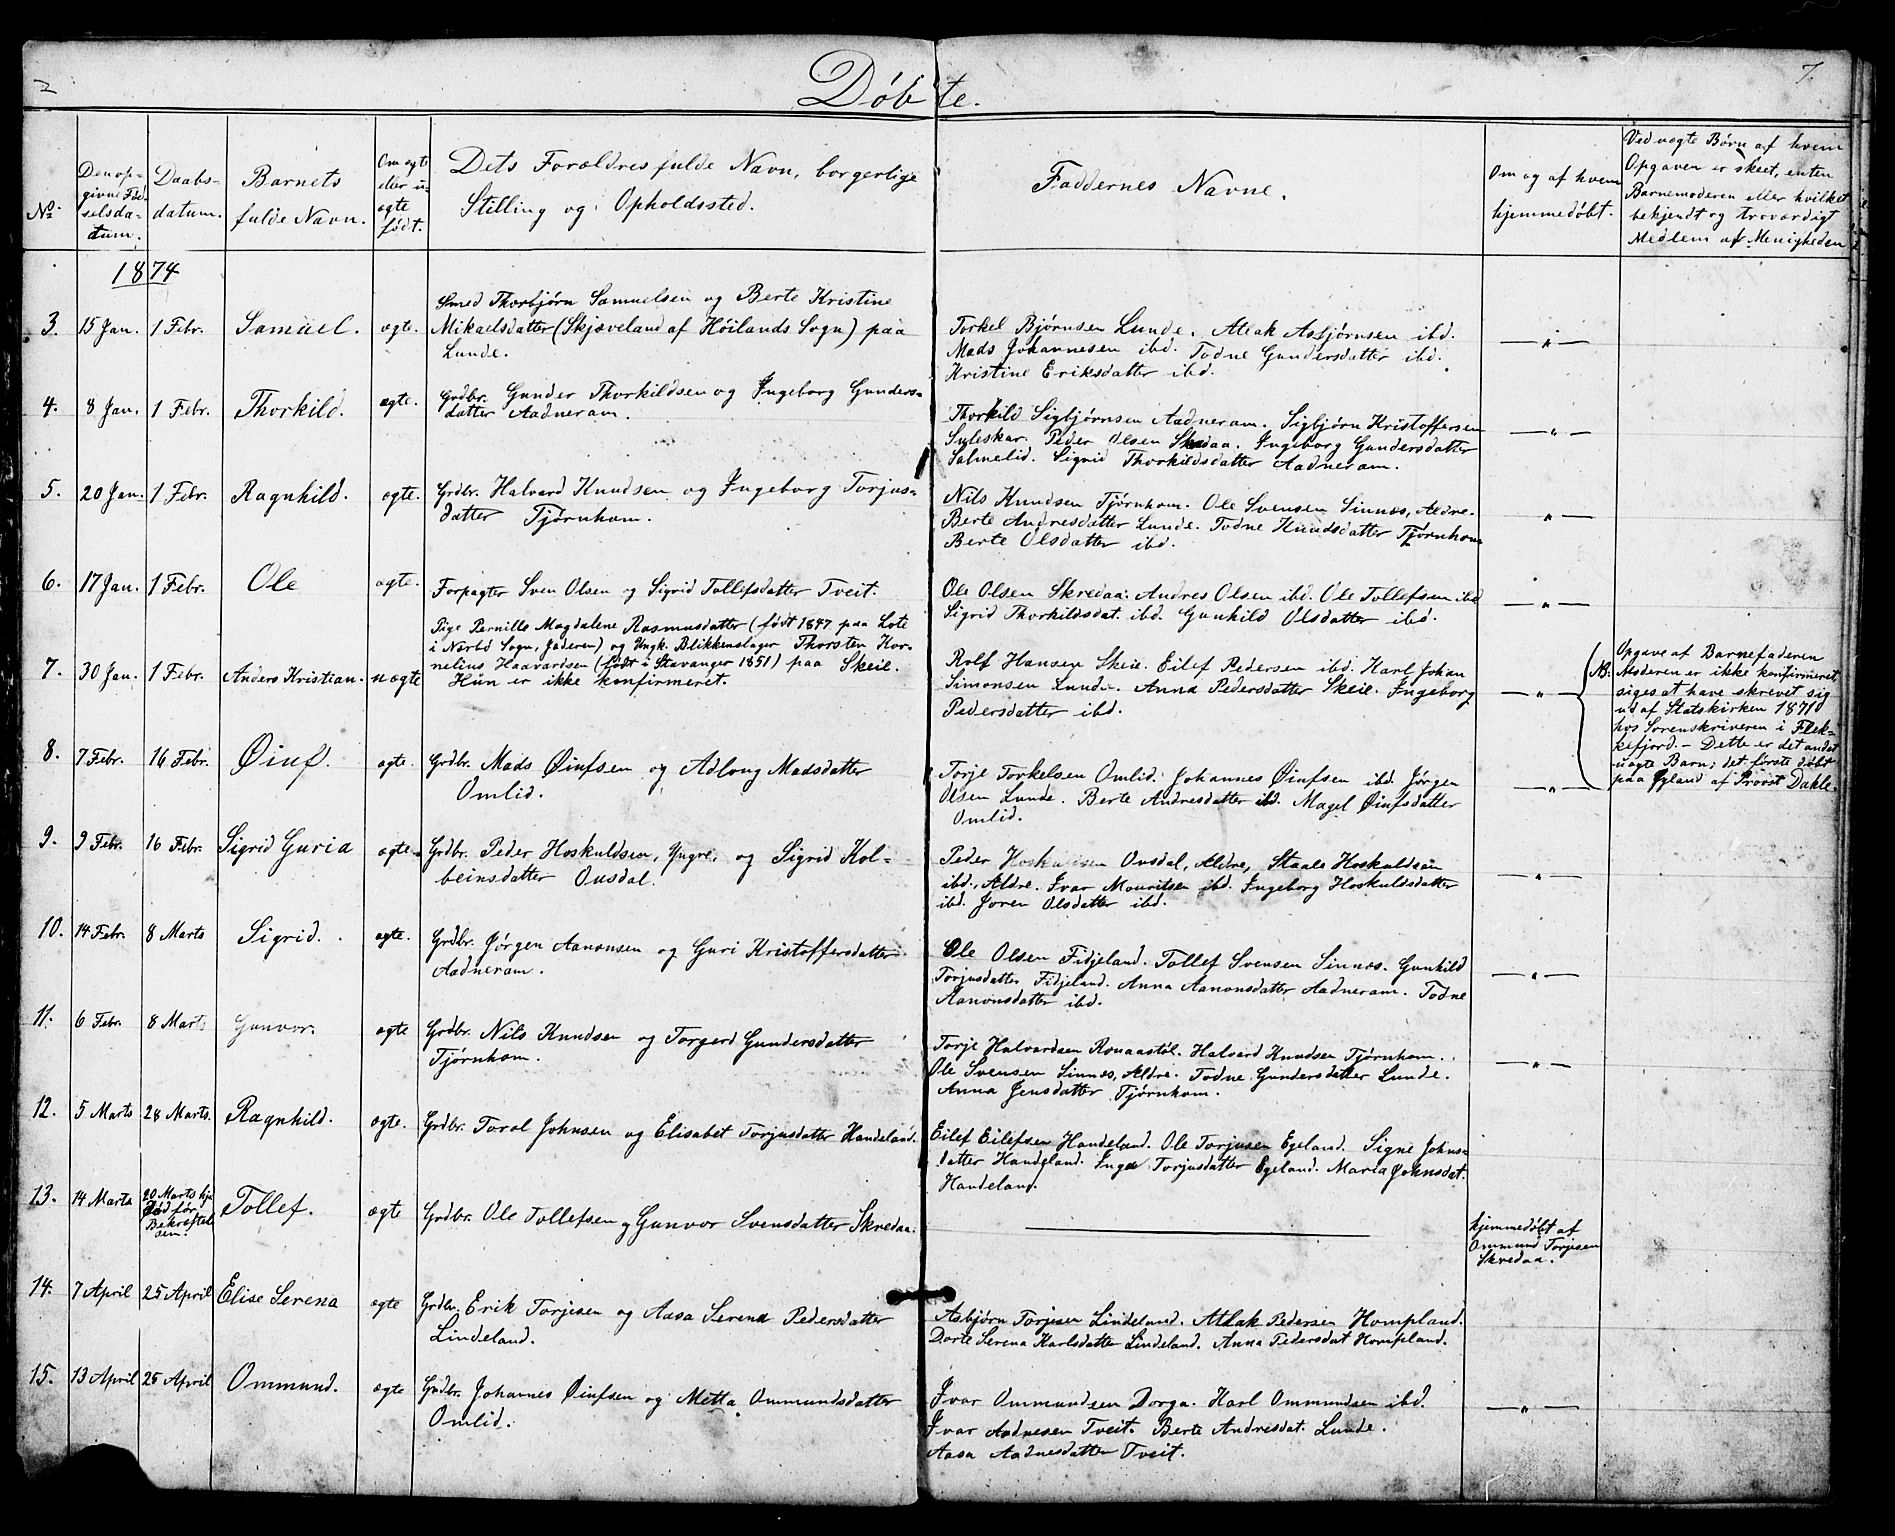 2
Døbte.
7.
No.
Den op-
givne Fød-
selsda-
tum.
Daabs-
datum.
Barnets
fulde Navn.
Om ægte
eller u-
ægte
født.
Dets Forældres fulde Navn, borgerlige
Stilling og Opholdssted.
Faddernes Navne.
Om og af hvem
hjemmedøbt.
Ved uægte Børn af hvem
Opgaven er skeet, enten
Barnemoderen eller hvilket
bekjendt og troværdigt
Medlem af Menigheden
1874
3. 15 Jan. 1 Febr. Samuel. ægte.
Smed Thorbjørn Samuelsen og Berte Kristine
Mikaelsdatter (Skjæveland af Höilands Sogn) paa
Lunde.
Torkel Bjørnsen Lunde. Atlak Asbjørnsen ibd.
Mads Johannesen ibd. Todne Gundersdatter ibd.
Kristine Eriksdatter ibd.
— " —
4. 8 Jan. 1 Febr. Thorkild. ægte.
Grdbr. Gunder Thorkildsen og Ingeborg Gunders-
datter Aadneram.
Thorkild Sigbjørnsen Aadneram. Sigbjørn Kristoffersen
Suleskar. Peder Olsen Skredaa. Ingeborg Gundersdatter
Salmelid. Sigrid Thorkildsdatter Aadneram.
— " —
5. 20 Jan. 1 Febr. Ragnhild. ægte.
Grdbr. Halvard Knudsen og Ingeborg Torjus-
datter Tjørnhom.
Nils Knudsen Tjørnhom. Ole Svensen Sinnes, Ældre.
Berte Andresdatter Lunde. Todne Knudsdatter Tjørnhom
Berte Olsdatter ibd.
— " —
6. 17 Jan. 1 Febr. Ole ægte.
Forpagter Sven Olsen og Sigrid Tollefsdatter Tveit.
Ole Olsen Skredaa. Andres Olsen ibd. Ole Tollefsen ibd
Sigrid Thorkildsdat. ibd. Gunhild Olsdatter ibd.
— " —
7. 30 Jan. 1 Febr. Anders Kristian. uægte
Pige Pernille Magdalene Rasmusdatter (født 1847 paa Lote
i Nærbö Sogn, Jæderen) og Ungk. Blikkenslager Thorsten Kor-
nelius Haavardsen (født i Stavanger 1851) paa Skeie.
Hun er ikke konfirmeret.
Rolf Hansen Skeie. Eilef Pedersen ibd. Karl Johan
Simonsen Lunde. Anna Pedersdatter Skeie. Ingeborg
Pedersdatter ibd.
— " —
NB.
Opgave af Barnefaderen
Moderen er ikke konfirmeret,
siges at have skrevet sig
ud af Statskirken 1871
hos Sorenskriveren i Flek-
kefjord. — Dette er det andet
uægte Barn; det første døbt
paa Egeland af Provst Dahle.
8. 7 Febr. 16 Febr. Øinf. ægte.
Grdbr. Mads Øinfsen og Adlong Madsdatter
Omlid.
Torje Torkelsen Omlid. Johannes Øinfsen ibd. Jørgen
Olsen Lunde. Berte Andresdatter ibd. Magel Øinfsdatter
Omlid.
— " —
9. 9 Febr. 16 Febr. Sigrid Guria ægte.
Grdbr. Peder Hoskuldsen, Yngre, og Sigrid Kol-
beinsdatter Ousdal.
Peder Hoskuldsen Ousdal, Ældre, Staale Hoskuldsen
ibd., Ældre. Ivar Mouritsen ibd. Ingeborg Hoskuldsdatter
ibd. Joren Olsdatter ibd.
— " —
10. 14 Febr. 8 Marts Sigrid. ægte.
Grdbr. Jörgen Aanonsen og Guri Kristoffersdatter
Aadneram.
Ole Olsen Fidjeland. Tollef Svensen Sinnes. Gunhild
Torjusdatter Fidjeland. Anna Aanonsdatter Aadneram. Todne
Aanonsdatter ibd.
— " —
11. 6 Febr. 8 Marts Gunvor. ægte
Grdbr. Nils Knudsen og Torgerd Gundersdatter
Tjørnhom.
Torje Halvardsen Rouaastöl. Halvard Knudsen Tjørnhom.
Ole Svensen Sinnes, Ældre. Todne Gundersdatter Lunde.
Anna Jensdatter Tjørnhom.
— " —
12. 5 Marts 28 Marts. Ragnhild. ægte.
Grdbr. Torol Johnsen og Elisabet Torjusdatter Handeland.
Eilef Eilefsen Handeland. Ole Torjusen Egeland. Signe Johns-
datter Handeland. Inga Torjusdatter Egeland. Maria Johnsdat.
Handeland.
13. 14 Marts 20 Marts hj.
Død før
Bekræftel
sen.
Tollef. ægte
Grdbr. Ole Tollefsen og Gunvor Svensdatter Skredaa.
hjemmedøbt af
Ommund Torjesen
Skredaa.
14. 7 April 25 April Elise Serena ægte
Grdbr. Erik Torjesen og Aasa Serena Pedersdatter
Lindeland.
Asbjørn Torjesen Lindeland. Atlak Pedersen Hompland.
Dorte Serena Karlsdatter Lindeland. Anna Pedersdat Hompland.
15. 13 April 25 April Ommund. ægte
Grdbr. Johannes Øinfsen og Metta Ommundsdatter
Omlid.
Ivar Ommundsen Dorga. Karl Ommundsen ibd.
Ivar Aadnesen Tveit. Berte Andresdat. Lunde.
Aasa Aadnesdatter Tveit.
— " —